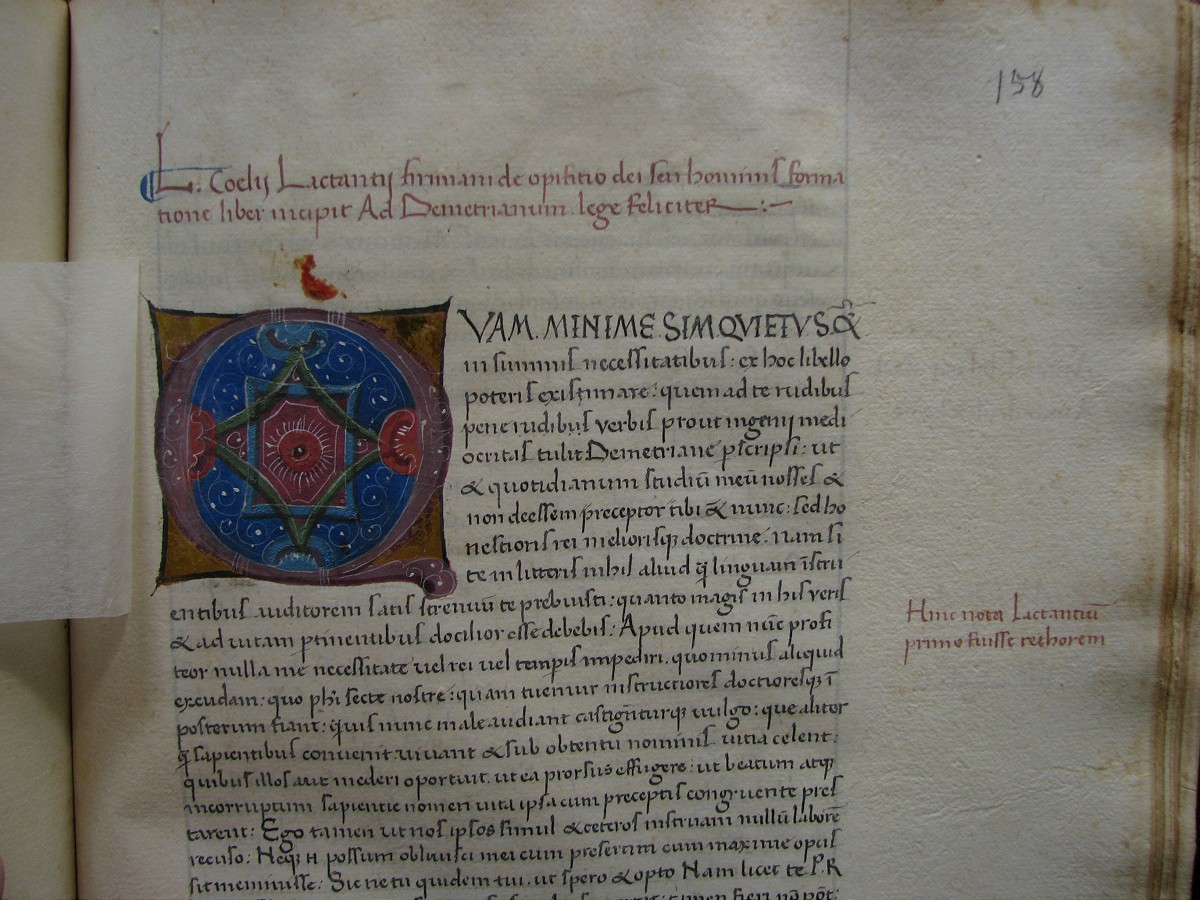 158
L. Coelij Lactantij firmiani de opifitio dei seu hominis forma
tione liber incipit Ad Demetrianum. lege feliciter :~
QVAM. MINIME. SIM QVIETVS. &
in summis necessitatibus: ex hoc libello
poteris existimare: quem ad te rudibus
pene rudibus verbis prout ingenij medi
ocritas tulit Demetriane pscripsi: ut
& quotidianum studiū meū nosses &
non deessem preceptor tibi & nunc: sed ho
nestioris rei meliorisq; doctrine: nam si
te in litteris nihil aliud q̄ linguam īstru
entibus auditorem satis strenuū te prebuisti: quanto magis in his veris
& ad uitam ptinentibus docilior esse debebis: Apud quem nūc profi
teor nulla me necessitate uel rei uel tempis impediri. quominus aliquid
excudam: quo phi secte nostre: quam tuemur instructiores doctioresq; ī
posterum fiant: q̄uis nunc male audiant castigēturq; uulgo: que aliter
q̄ sapientibus conuenit uiuant & sub obtentu nominis uitia celent:
quibus illos aut mederi oportuit. ut ea prorsus effugere: ut beatum atq;
incorruptum sapientie nomen uita ipsa cum preceptis congruente pres
tarent: Ego tamen ut nos ipsos simul & ceteros instruam nullū laborē
recuso: Neq; possum obliuisci mei cum presertim cum maxime opus
sit meminisse: Sic ne tu quidem tui. ut spero & opto Nam licet te P. R
tamen fieri nō pōt:
Hinc nota Lactantiū
primo fuisse rethorem